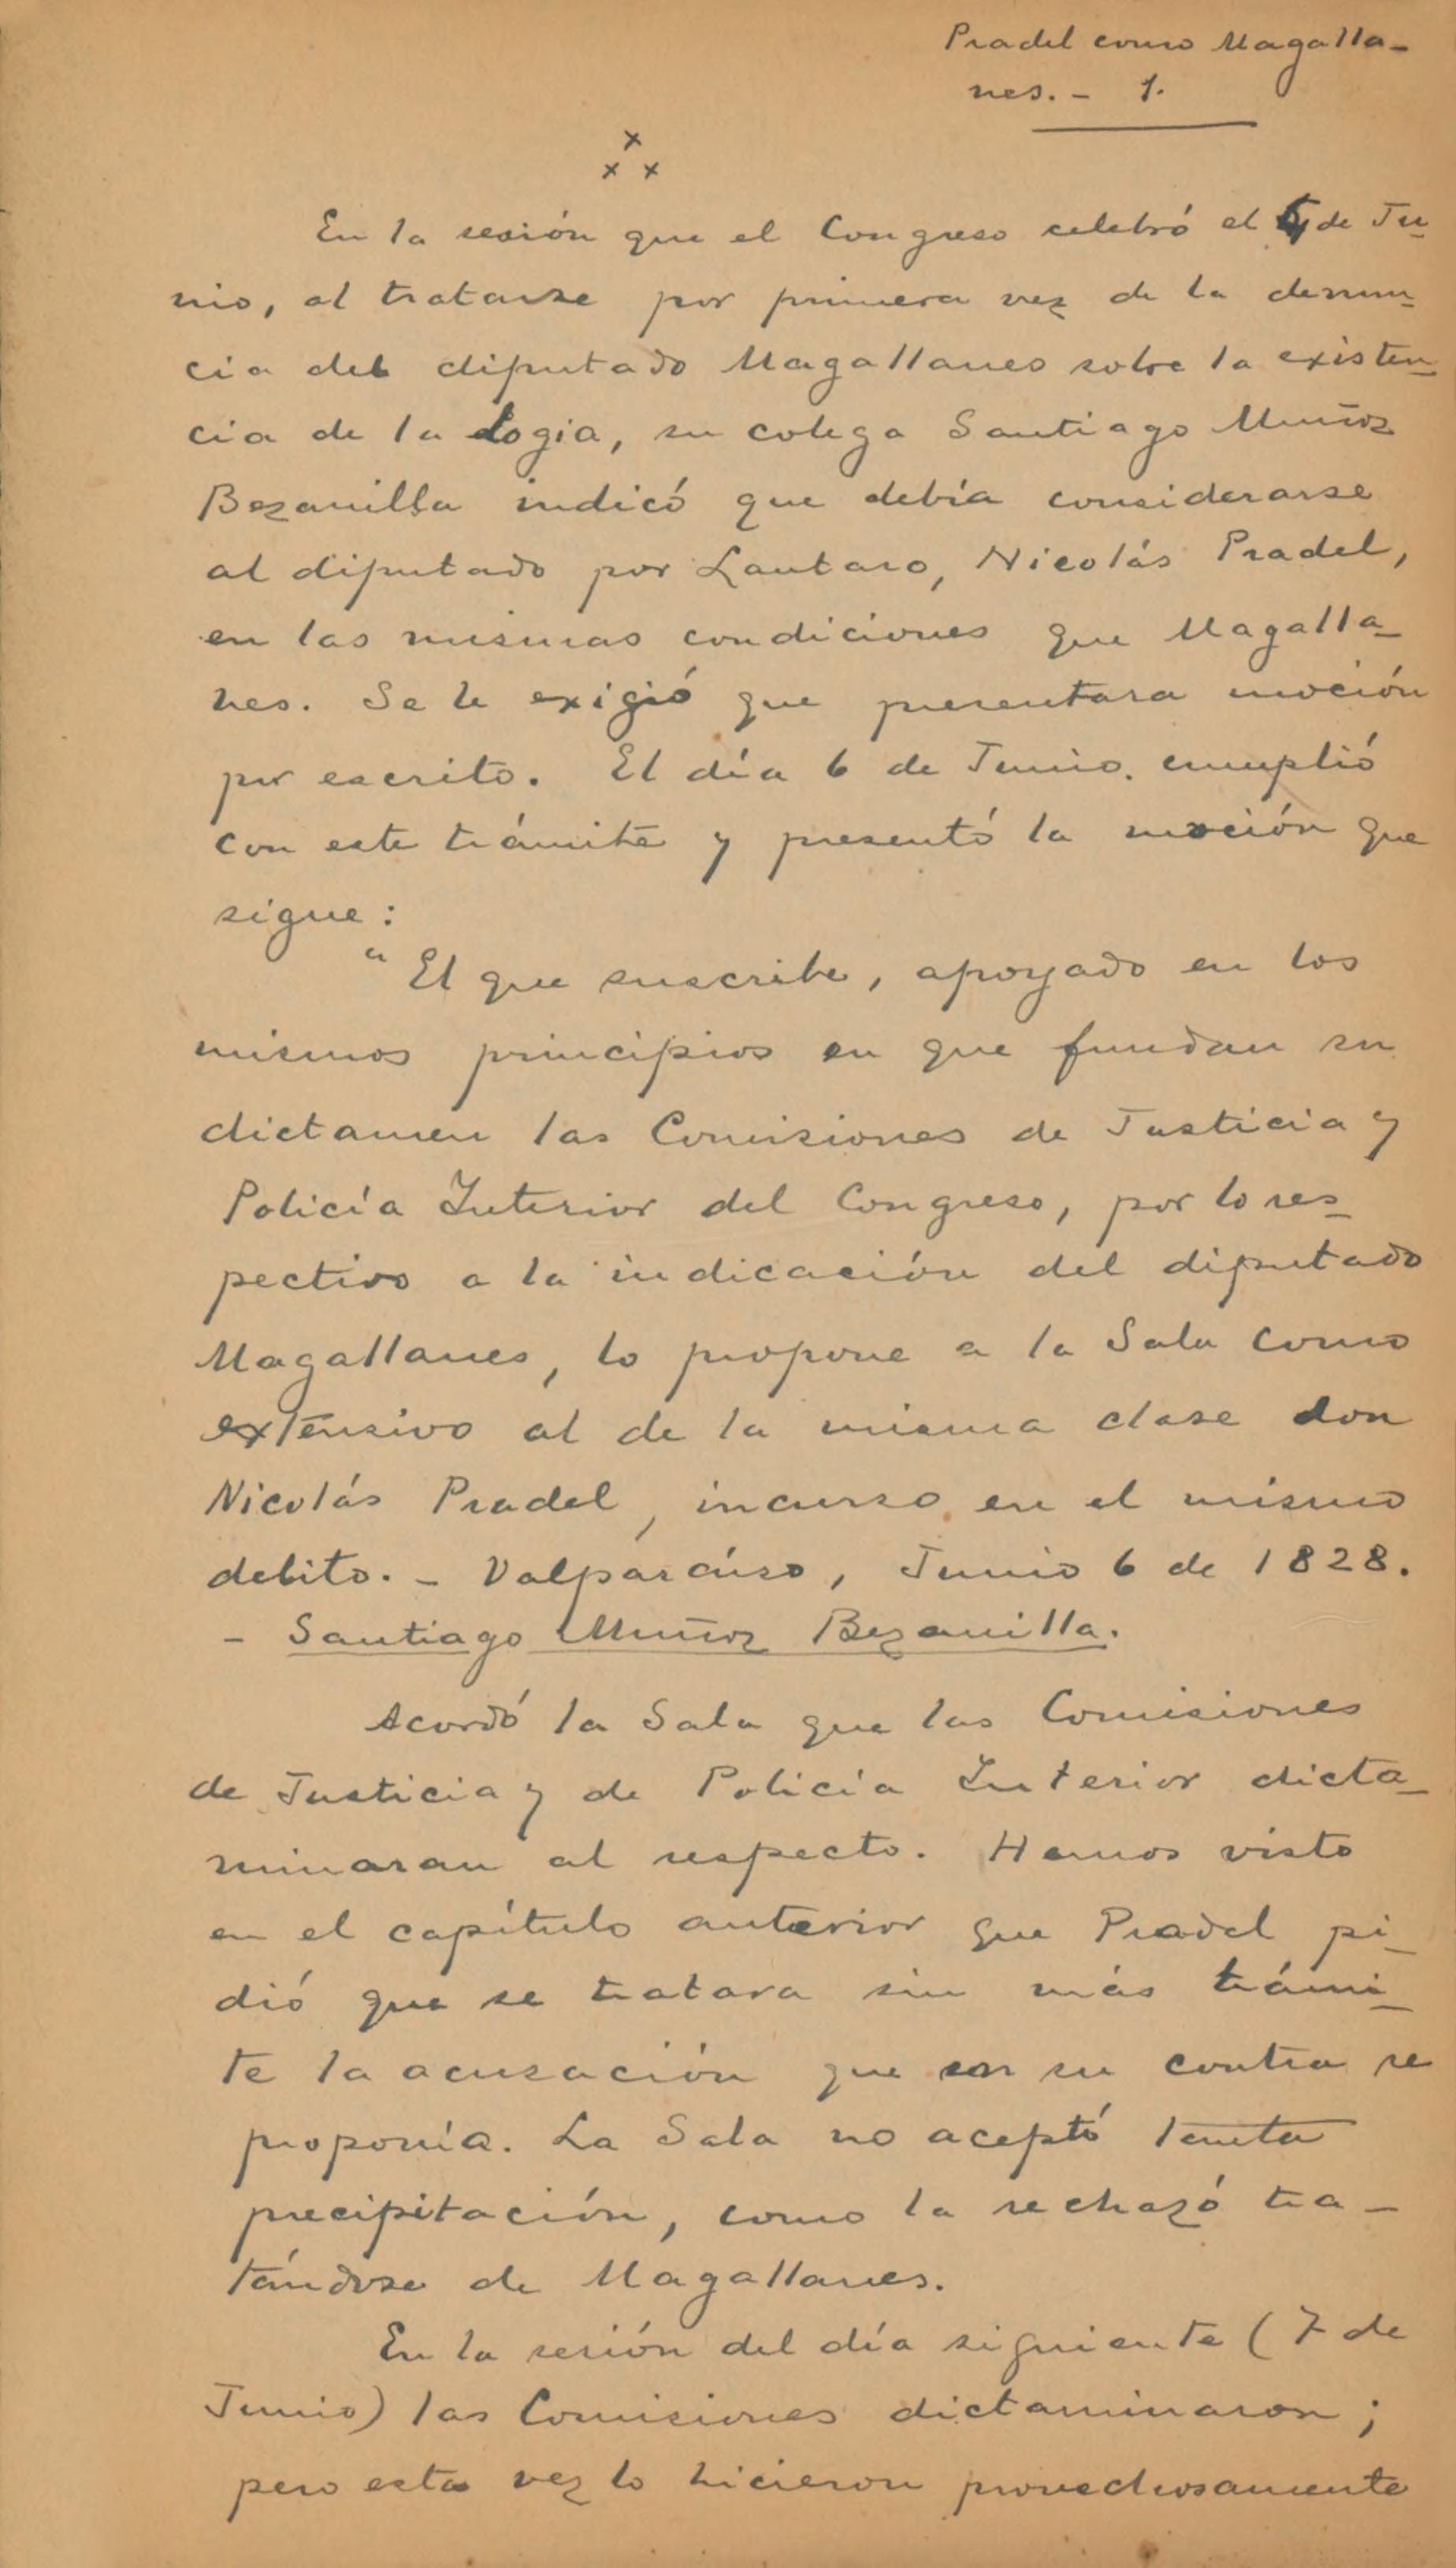 Pradel como Magalla-
nes. - 1.
x
x x
En la sesión que el Congreso celebró el 5 de Ju-
nio, al tratarse por primera vez de la denun-
cia del diputado Magallanes sobre la existen-
cia de la Logia, su colega Santiago Muñoz
Bezanilla indicó que debía considerarse
al diputado por Lautaro, Nicolás Pradel,
en las mismas condiciones que Magalla-
nes. Se le exigió que presentara moción
por escrito. El día 6 de Junio. cumplió
con este trámite y presentó la moción que
sigue:
"El que suscribe, apoyado en los
mismos principios en que fundan su
dictamen las Comisiones de Justicia y
Policía Interior del Congreso, por lo res-
pectivo a la indicación del diputado
Magallanes, lo propone a la Sala como
extensivo al de la misma clase don
Nicolás Pradel, incurso en el mismo
delito. - Valparaíso, Junio 6 de 1828.
- Santiago Muñoz Bezanilla.
Acordó la Sala que las Comisiones
de Justicia y de Policía Interior dicta-
minaran al respecto. Hemos visto
en el capítulo anterior que Pradel pi-
dió que se tratara sin más trámi-
te la acusación que en su contra se
proponía. La Sala no aceptó tanta
precipitación, como la rechazó tra-
tándose de Magallanes.
En la sesión del día siguiente (7 de
Junio) las Comisiones dictaminaron;
pero esta vez lo hicieron provechosamente